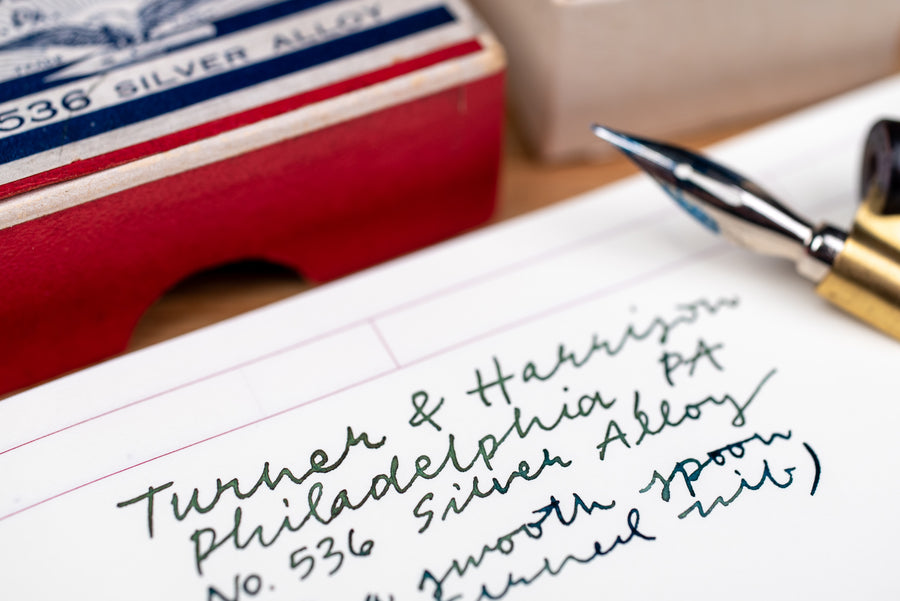 536 SILVER ALLOY
Turner & Harrison
Philadelphia PA
No. 536 Silver Alloy
smooth spoon
turned nib)